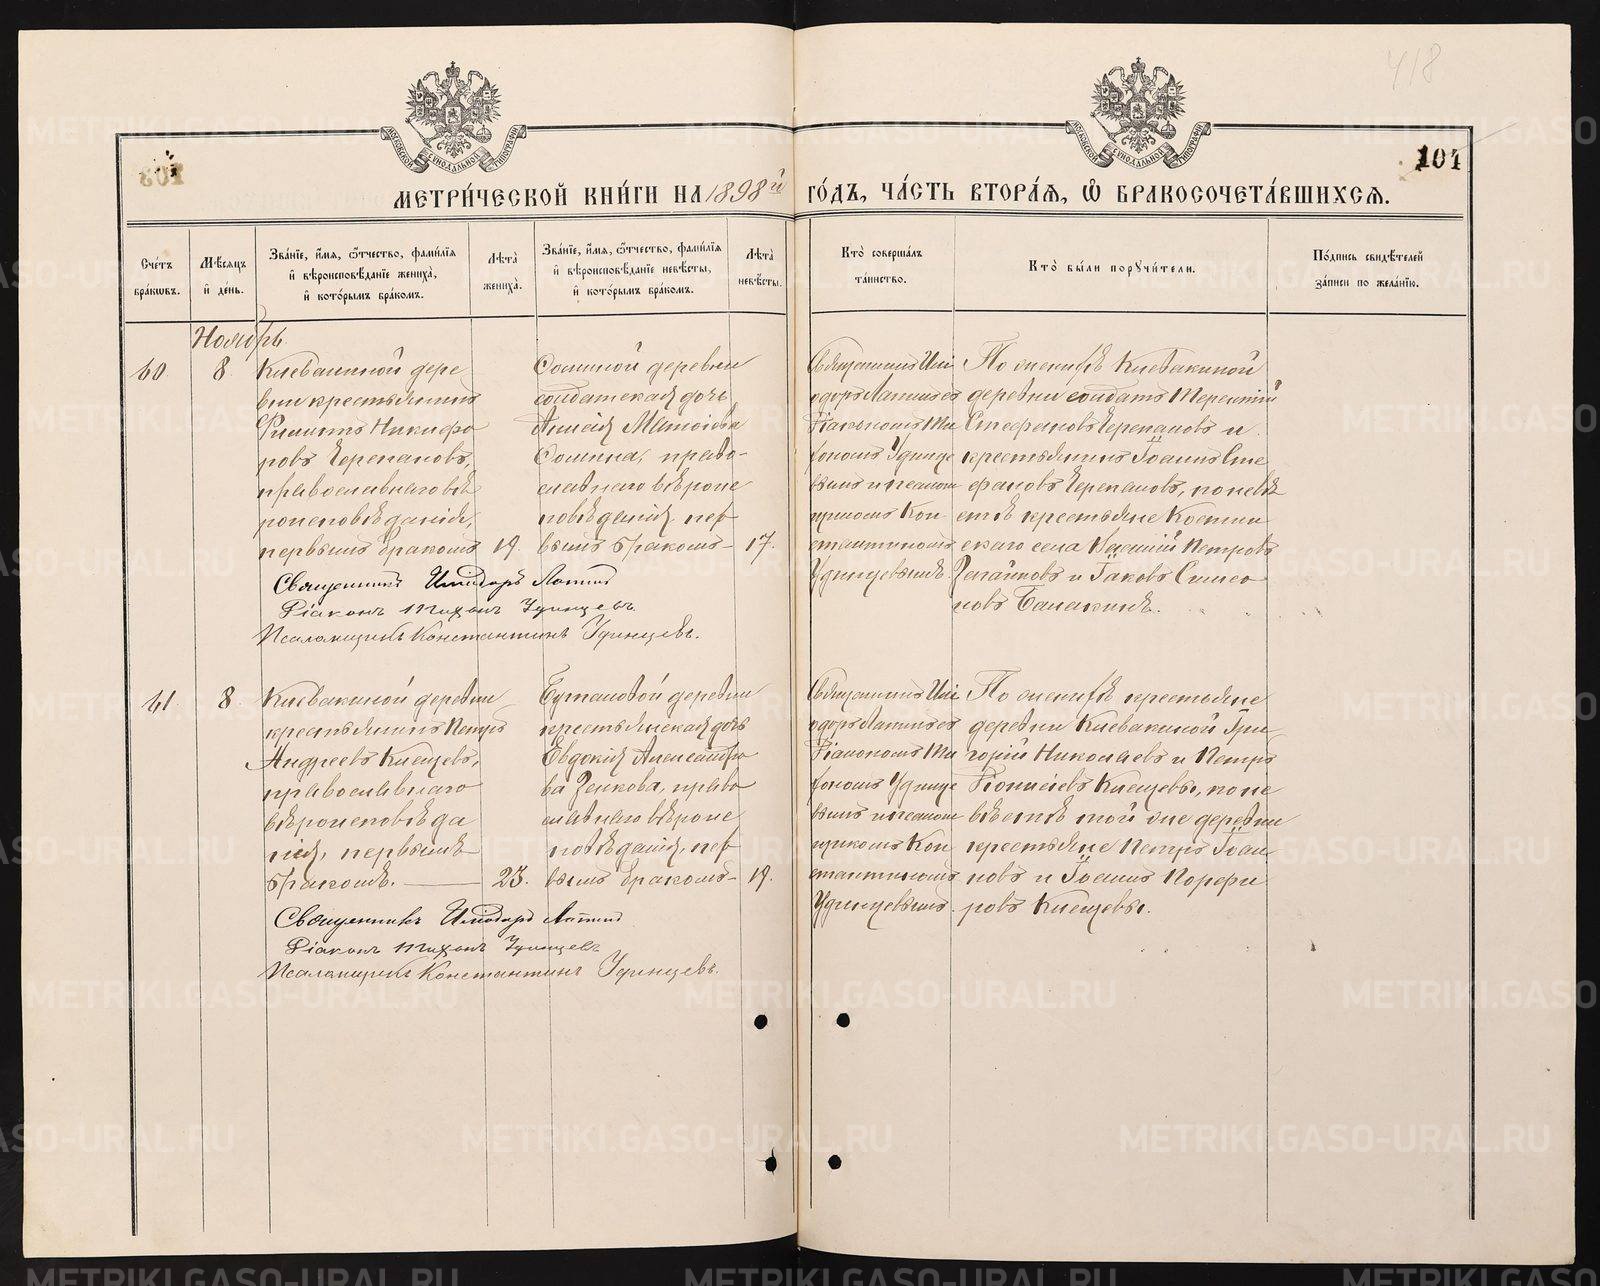 418
104
МОСКОВСКОЙ СѴНОДАЛЬНОЙ ТИПОГРАФІИ
МОСКОВСКОЙ СѴНОДАЛЬНОЙ ТИПОГРАФІИ
МЕТРИ́ЧЕСКОЙ КНИ́ГИ НА 1898й ГО́ДЪ, ЧА́СТЬ ВТОРА́Я, Ѡ БРАКОСОЧЕТА́ВШИХСЯ.
Сче́тъ бра́кѡвъ.
Мѣ́сяцъ и҆ де́нь.
Зва́нїе, и҆́мя, ѻ҆́тчество, фами́лїя и҆ вѣроисповѣ́данїе жениха̀, и҆ кото́рымъ бра́комъ.
Лѣ́та жениха̀.
Зва́нїе, и҆́мя, ѻ҆́тчество, фами́лїя и҆ вѣроисповѣ́данїе невѣ́сты, и҆ кото́рымъ бра́комъ.
Лѣ́та невѣ́сты.
Кто̀ соверша́лъ та́инство.
Кто̀ бы́ли порꙋчи́тели.
По́дпись свидѣ́телей за́писи по жела́нїю.
Ноябрь.
60
8
Клевакиной дере
вни крестьянинъ
Филиппъ Никифо
ровъ Черепановъ,
православнаго вѣ
роисповѣданія,
первымъ бракомъ
19.
Сохиной деревни
солдатская дочь
Анисія Матоіева
Сохина, право-
славнаго вѣроис
повѣданія, пер
вымъ бракомъ
17.
Священникъ Иси
доръ Лапинъ съ
Діакономъ Ти
хономъ Удинце
вымъ и псалом
щикомъ Кон
стантиномъ
Удинцевымъ
По женихѣ Клевакиной
деревни солдатъ Терентій
Стефановъ Черепановъ и
крестьянинъ Іоаннъ Сте
фановъ Черепановъ, по невѣ
стѣ крестьяне Костин
скаго села Василій Петровъ
и Іаковъ Симео
новъ Балакинъ.
Священникъ Исидоръ Лапинъ
Діаконъ Тихонъ Удинцевъ
Псаломщикъ Константинъ Удинцевъ.
61
8
Клевакиной деревни
крестьянинъ Петръ
Андреевъ Клещевъ,
православнаго
вѣроисповѣда
нія, первымъ
бракомъ.
23.
деревни
крестьянская дочь
Евдокія Александро
ва Зенкова, право
славнаго вѣроис
повѣданія, пер
вымъ бракомъ
19.
Священникъ Иси
доръ Лапинъ съ
Діакономъ Ти
хономъ Удинце
вымъ и псалом
щикомъ Кон
стантиномъ
Удинцевымъ.
По женихѣ крестьяне
деревни Клевакиной Гри
горій Николаевъ и Петръ
Діонисіевъ Клещевы, по не
вѣстѣ той же деревни
крестьяне Петръ Іоан
новъ и Іоаннъ Порфи
ровъ Клещевы.
Священникъ Исидоръ Лапинъ
Діаконъ Тихонъ Удинцевъ
Псаломщикъ Константинъ Удинцевъ.
METRIKI.GASO-URAL.RU